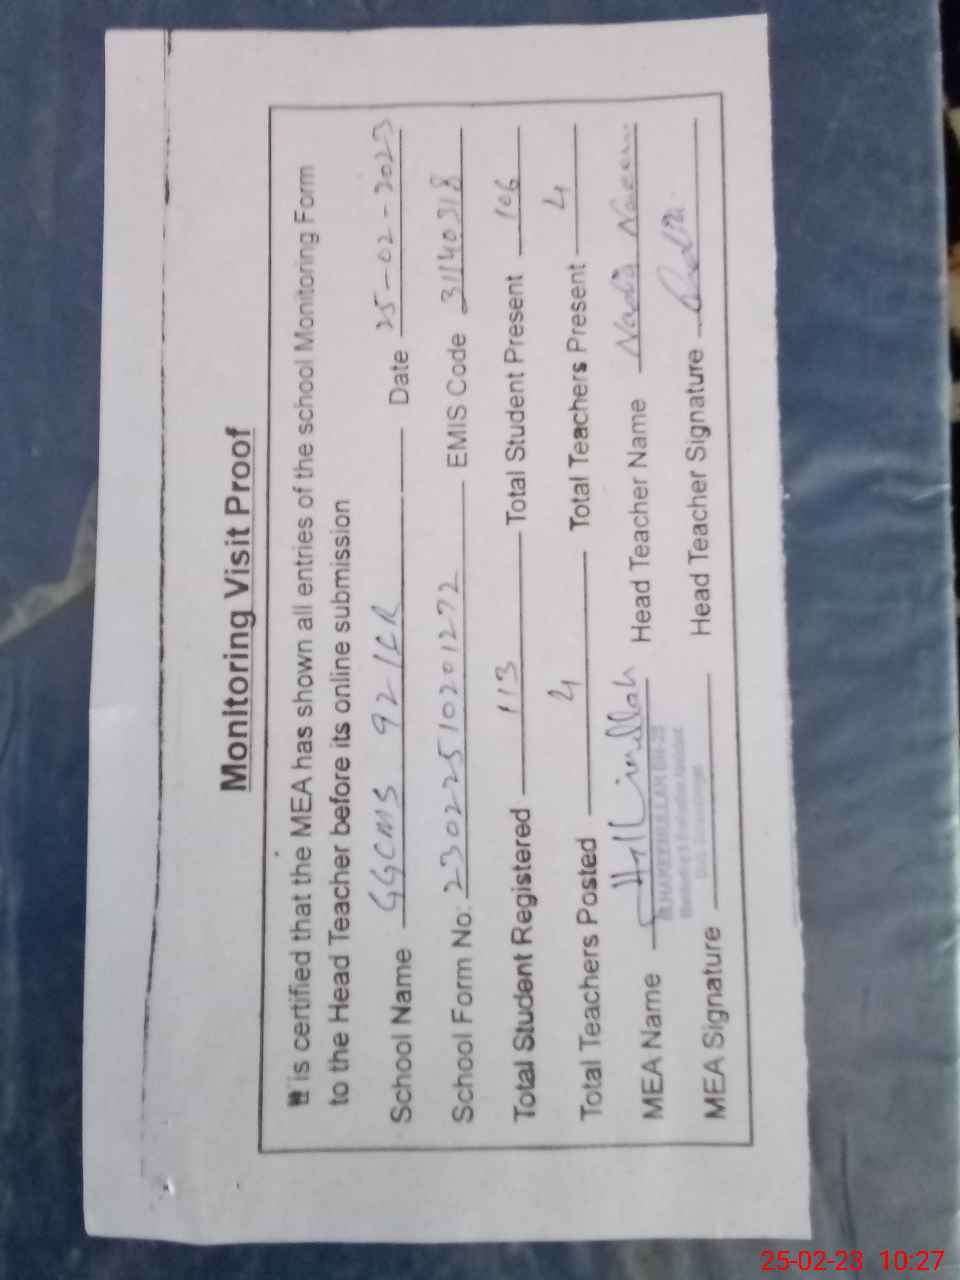 Monitoring Visit Proof
It is certified that the MEA has shown all entries of the school Monitoring Form
to the Head Teacher before its online submission
School Name GGCMS 92/ER Date 25-02-2023
School Form No: 23022510201272 EMIS Code 31140318
Total Student Registered 113 Total Student Present 106
Total Teachers Posted 4 Total Teachers Present 4
MEA Name Head Teacher Name Nadia Naeem
MEA Signature Head Teacher Signature
25-02-23 10:27